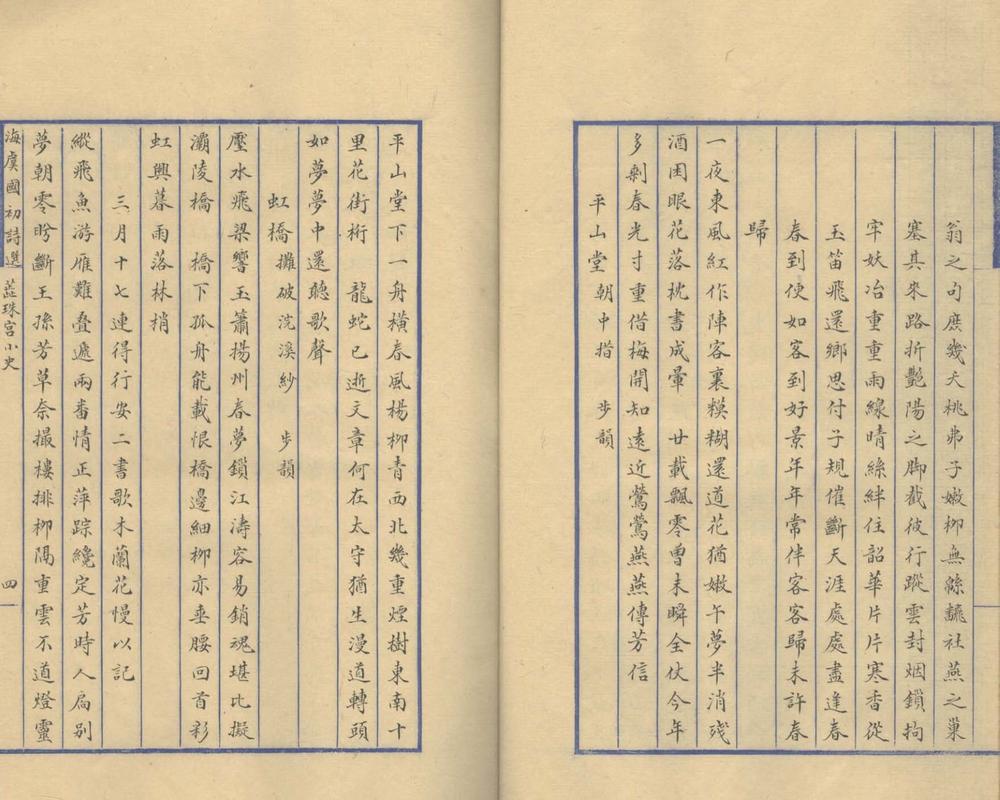 翁之句庶幾夭桃弗子嫩柳無緜驪社燕之巢
塞其來路折艷陽之脚截彼行蹤雲封烟鎖拘
牢妖冶重重雨線晴絲絆住韶華片片寒香從
玉笛飛還鄉思付子規催斷天涯處處盡逢春
春到便如客到好景年年常伴客客歸未許春
歸
一夜東風紅作陣客裏糢糊還道花猶嫩午夢半消殘
酒困眼花落枕書成暈　廿載飄零曾未瞬全仗今年
多剩春光寸重借梅開知遠近鶯鶯燕燕傳芳信
平山堂朝中措　步韻
平山堂下一舟橫春風楊柳青西北幾重煙樹東南十
里花街桁　龍蛇已逝文章何在太守猶生漫道轉頭
如夢夢中還聽歌聲
虹橋攤破浣溪紗　步韻
壓水飛梁響玉簫揚州春夢鎖江濤容易銷魂堪比擬
灞陵橋　橋下孤舟能載恨橋邊細柳亦垂腰回首彩
虹興暮雨落林梢
三月十七連得行安二書歌木蘭花慢以記
縱飛魚游雁難叠遞兩畨情正萍踪纔定芳時人扃别
夢朝零盻斷王孫芳草奈撮樓排柳隔重雲不道燈靈
海虞國初詩選　蕋珠宫小史　四